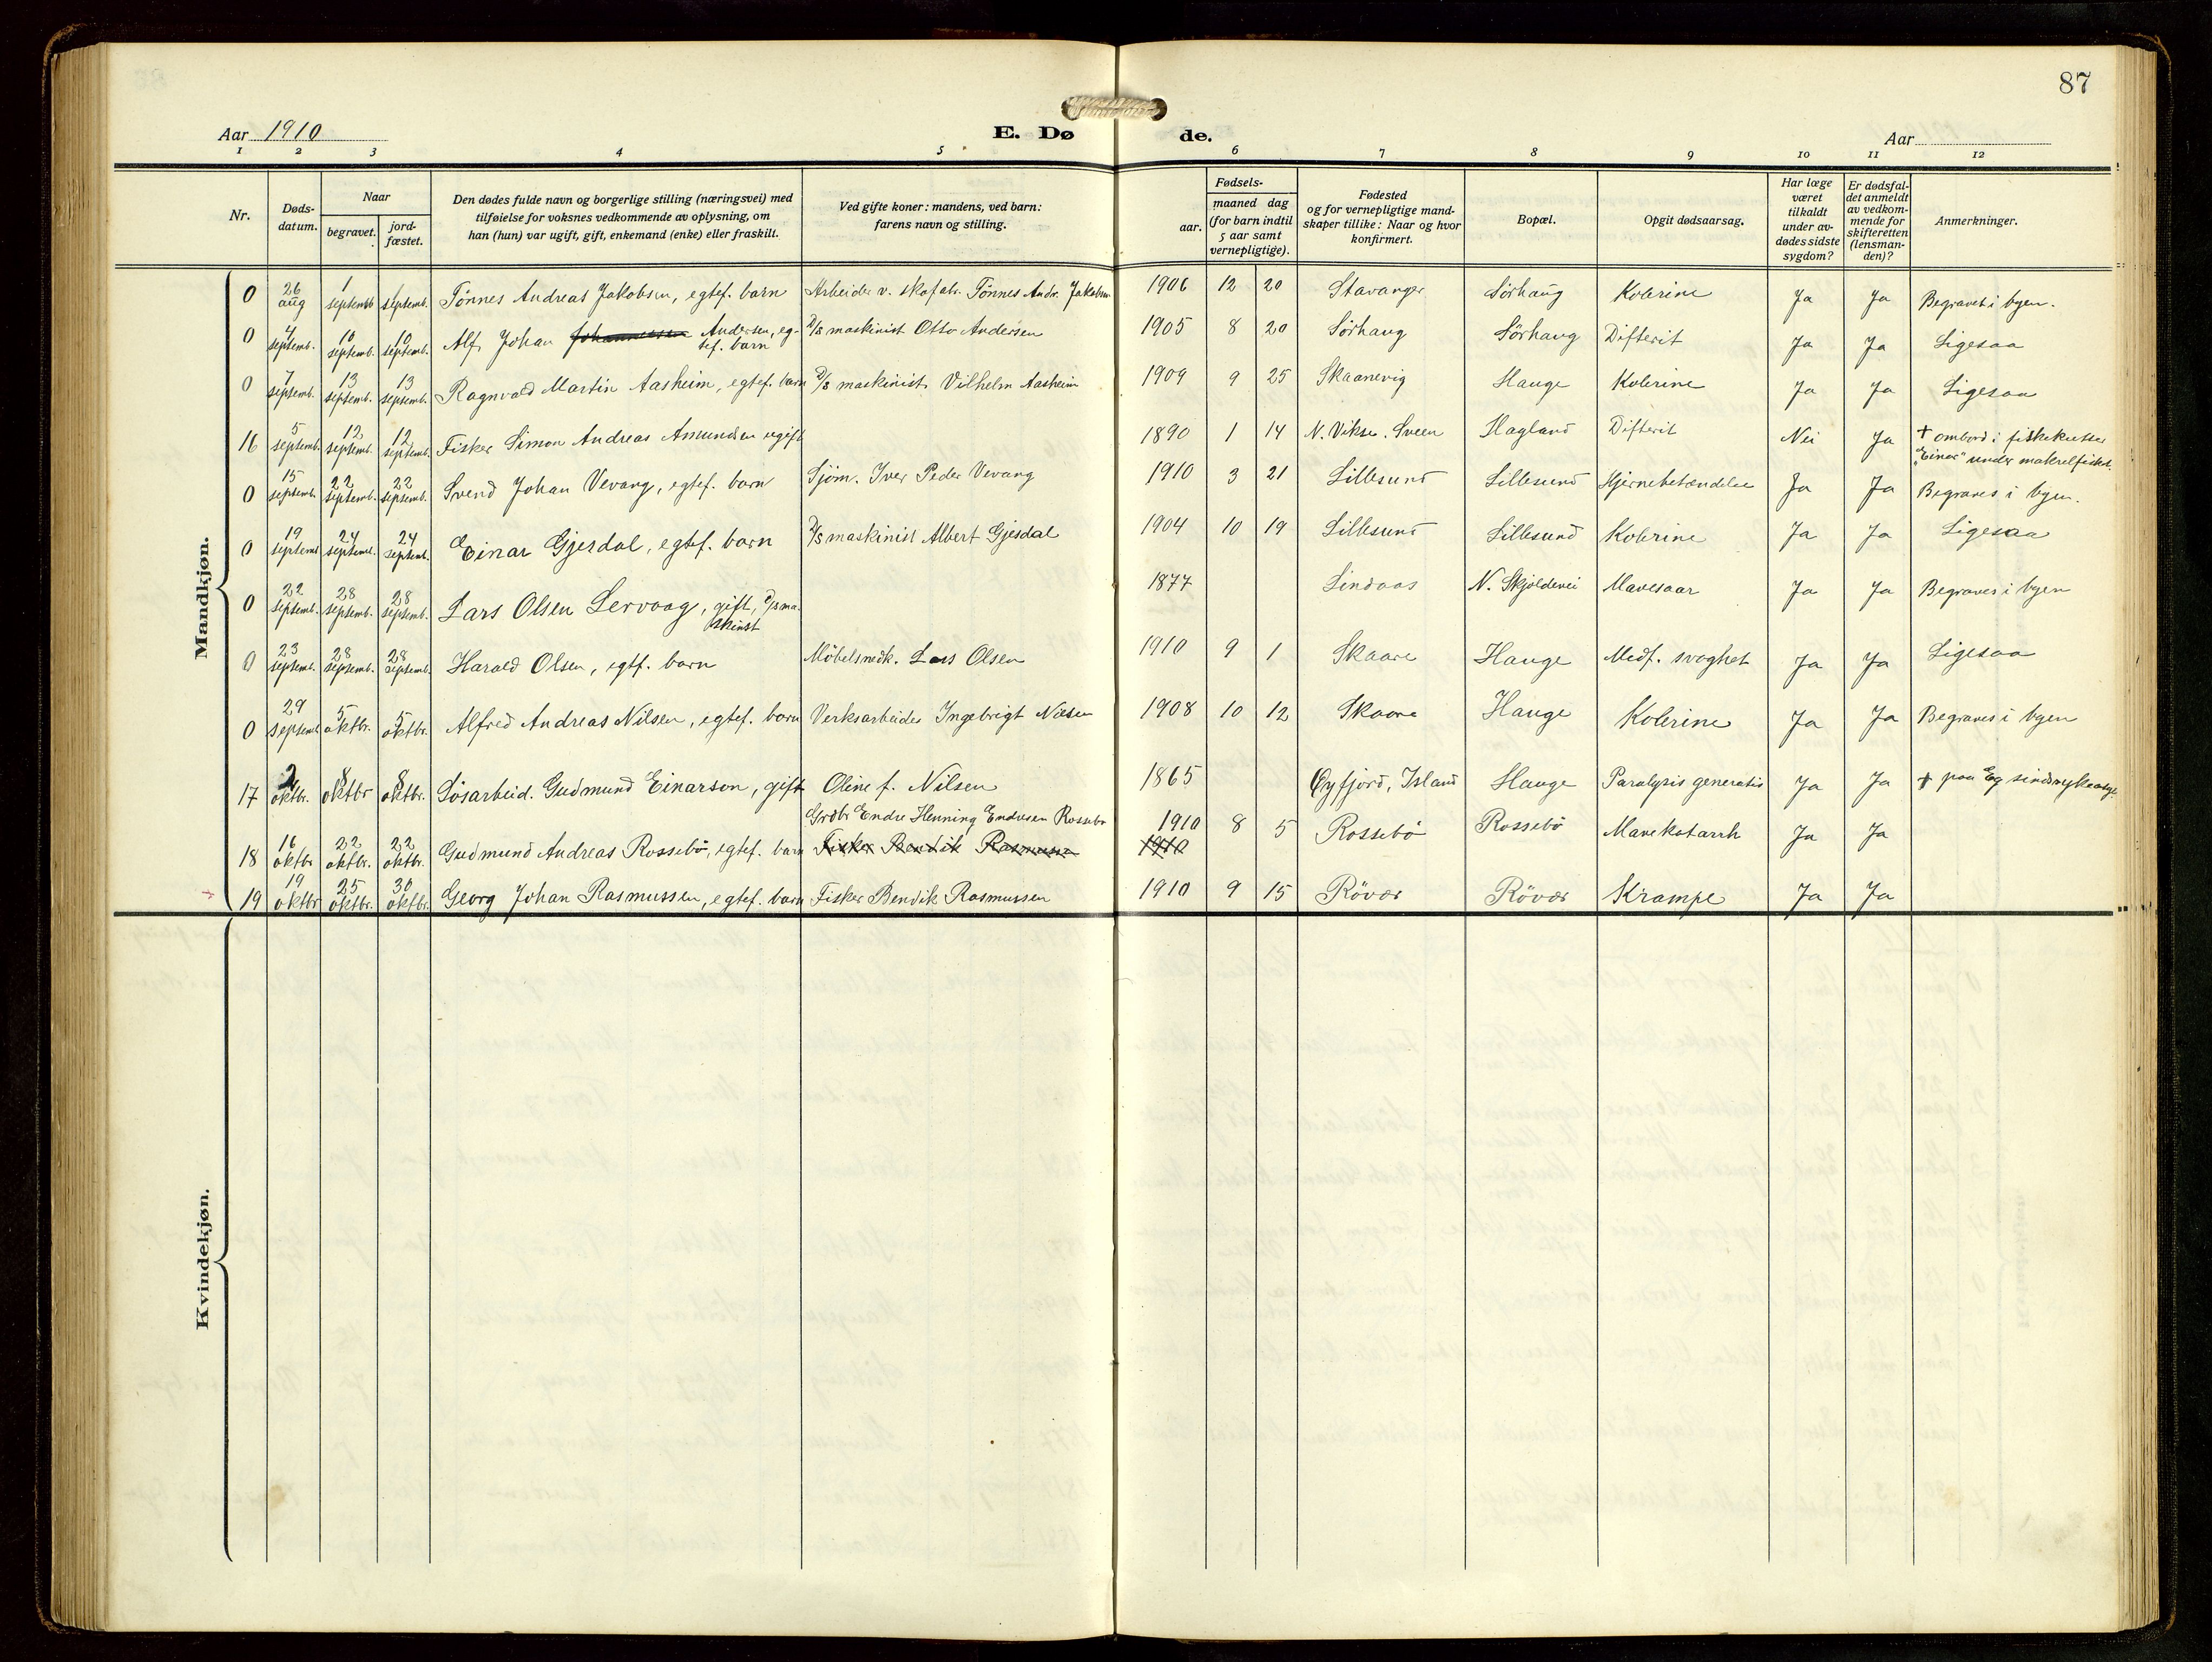 87
Aar 1910
E. Dø de.
Aar
1 2 3 4 5 6 7 8 9 10 11 12
Nr.
Døds-
datum.
Naar
begravet.
jord-
fæstet.
Den dødes fulde navn og borgerlige stilling (næringsvei) med
tilføielse for voksnes vedkommende av oplysning, om
han (hun) var ugift, gift, enkemand (enke) eller fraskilt.
Ved gifte koner: mandens, ved barn:
farens navn og stilling.
Fødsels-
aar.
maaned dag
(for barn indtil
5 aar samt
vernepligtige).
Fødested
og for vernepligtige mand-
skaper tillike: Naar og hvor
konfirmert.
Bopæl.
Opgit dødsaarsag.
Har læge
været
tilkaldt
under av-
dødes sidste
sygdom?
Er dødsfal-
det anmeldt
av vedkom-
mende for
skifteretten
(lensman-
den)?
Anmerkninger.
Mandkjøn.
0 26 aug 1 septemb. 1 septemb. Tønnes Andreas Jakobsen, egtef. barn Arbeider v. skofabr. Tønnes Andr. Jakobsen 1906 12 20 Stavanger Sørhaug Kolerine Ja Ja Begravet i byen.
0 4 septemb. 10 septemb. 10 septemb. Alf Johan Johannessen Andersen, eg-
tef. barn D/S maskinist Otto Andersen 1905 8 20 Sørhaug Sørhaug Difterit Ja Ja Ligesaa
0 7 septemb. 13 septemb. 13 septemb. Ragnvald Martin Aasheim, egtef. barn D/S maskinist Vilhelm Aasheim 1909 9 25 Skaanevig Hauge Kolerine Ja Ja Ligesaa
16 5 septemb. 12 septemb. 12 septemb. Fisker Simon Andreas Amundsen ugift 1890 1 14 N. Vikse. Sveen Hagland Difterit Nei Ja + ombord i fiskekutter
"Einar" under makrelfisket.
0 15 septemb. 22 septemb. 22 septemb. Svend Johan Vevang, egtef. barn Sjöm. Iver Peder Vevang 1910 3 21 Lillesund Lillesund Hjernebetændelse Ja Ja Begraves i byen.
0 19 septemb. 24 septemb. 24 septemb. Einar Gjesdal, egtf. barn D/S maskinist Albert Gjesdal 1904 10 19 Lillesund Lillesund Kolerine Ja Ja Ligesaa
0 22 septemb. 28 septemb. 28 septemb. Lars Olsen Lervaag, gift, D/S ma-
skinist 1877 Lindaas N. Skjoldevei Mavesaar Ja Ja Begraves i byen
0 23 septemb. 28 septemb. 28 septemb. Harald Olsen, egtf. barn Möbelsnedk. Lars Olsen 1910 9 1 Skaare Hauge Medf. svaghet Ja Ja Ligesaa
0 29 septemb. 5 oktbr. 5 oktbr. Alfred Andreas Nilsen, egtef. barn Verksarbeider Ingebrigt Nilsen 1908 10 12 Skaare Hauge Kolerine Ja Ja Begraves i byen
17 2 oktbr. 8 oktbr 8 oktbr. Løsarbeid. Gudmund Einarson, gift Oline f. Nilsen 1865 Øyfjord, Island Hauge Paralysis generalis Ja Ja + paa Eg sindssykeasyl.
Grdbr Endre Henning Endresen Rossebø 1910 8 5
18 16 oktbr 22 oktbr. 22 oktbr. Gudmund Andreas Rossebö, egtef. barn Fisker Bendik Rasmussen 1910 Rossebö Rossebö Mavekatarrh Ja Ja
19 19 oktbr 25 oktbr. 30 oktbr. Georg Johan Rasmussen, egtef. barn Fisker Bendik Rasmussen 1910 9 15 Rövær Rövær Krampe Ja Ja
Kvindekjøn.